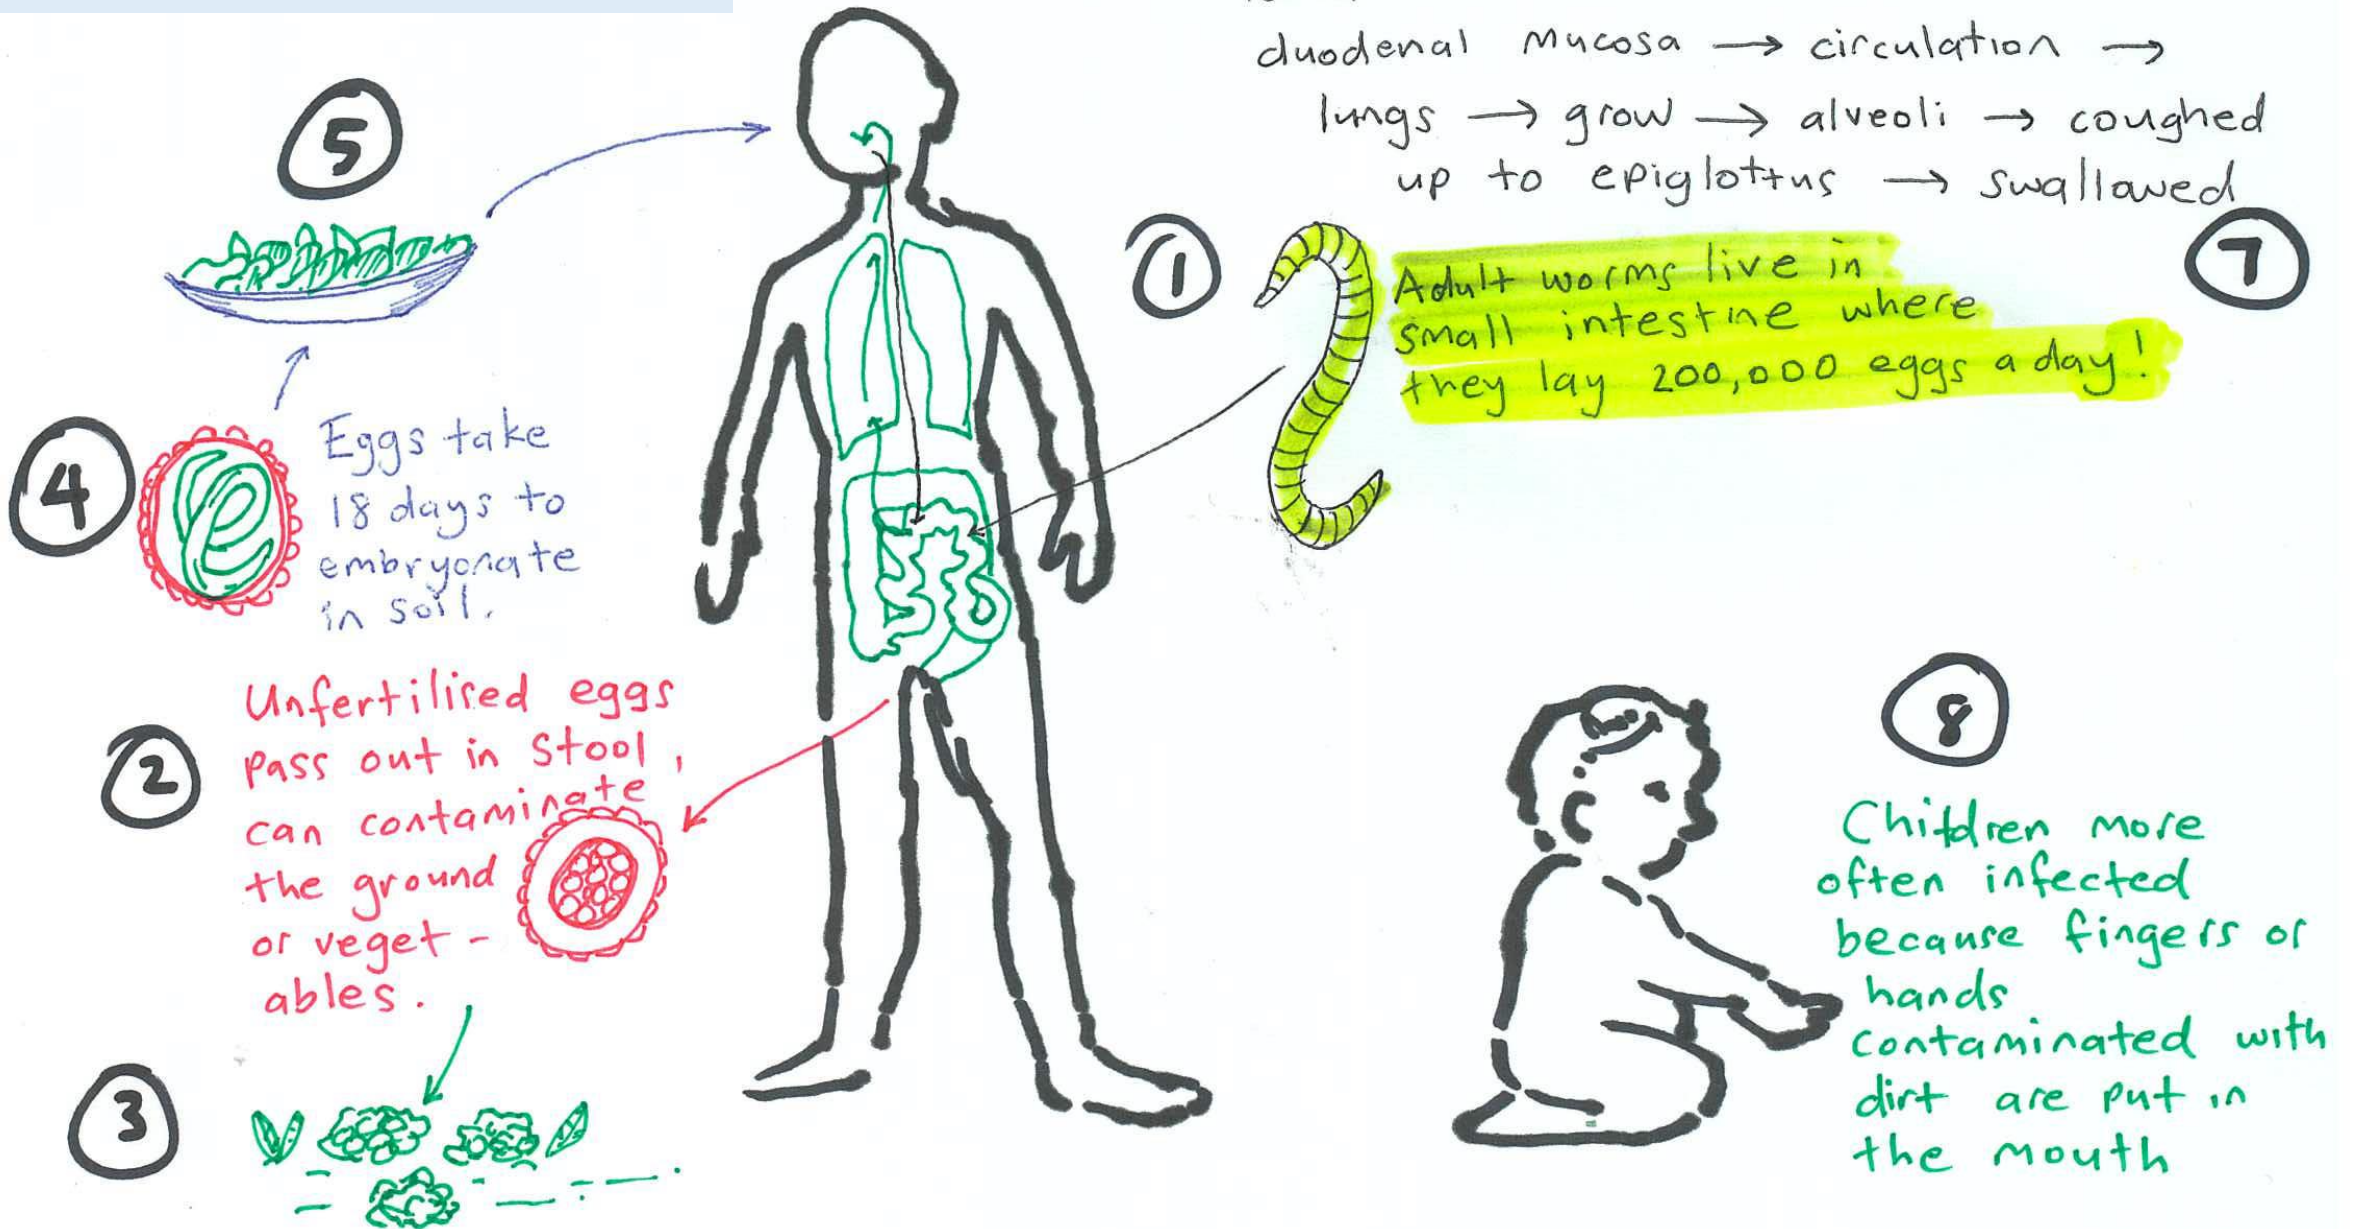 duodenal mucosa → circulation →
lungs → grow → alveoli → coughed
up to epiglottus → swallowed
7
1
Adult worms live in
small intestine where
they lay 200,000 eggs a day!
5
4
Eggs take
18 days to
embryonate
in soil.
2
Unfertilised eggs
pass out in stool,
can contaminate
the ground
or veget-
ables.
3
8
Children more
often infected
because fingers or
hands
contaminated with
dirt are put in
the mouth